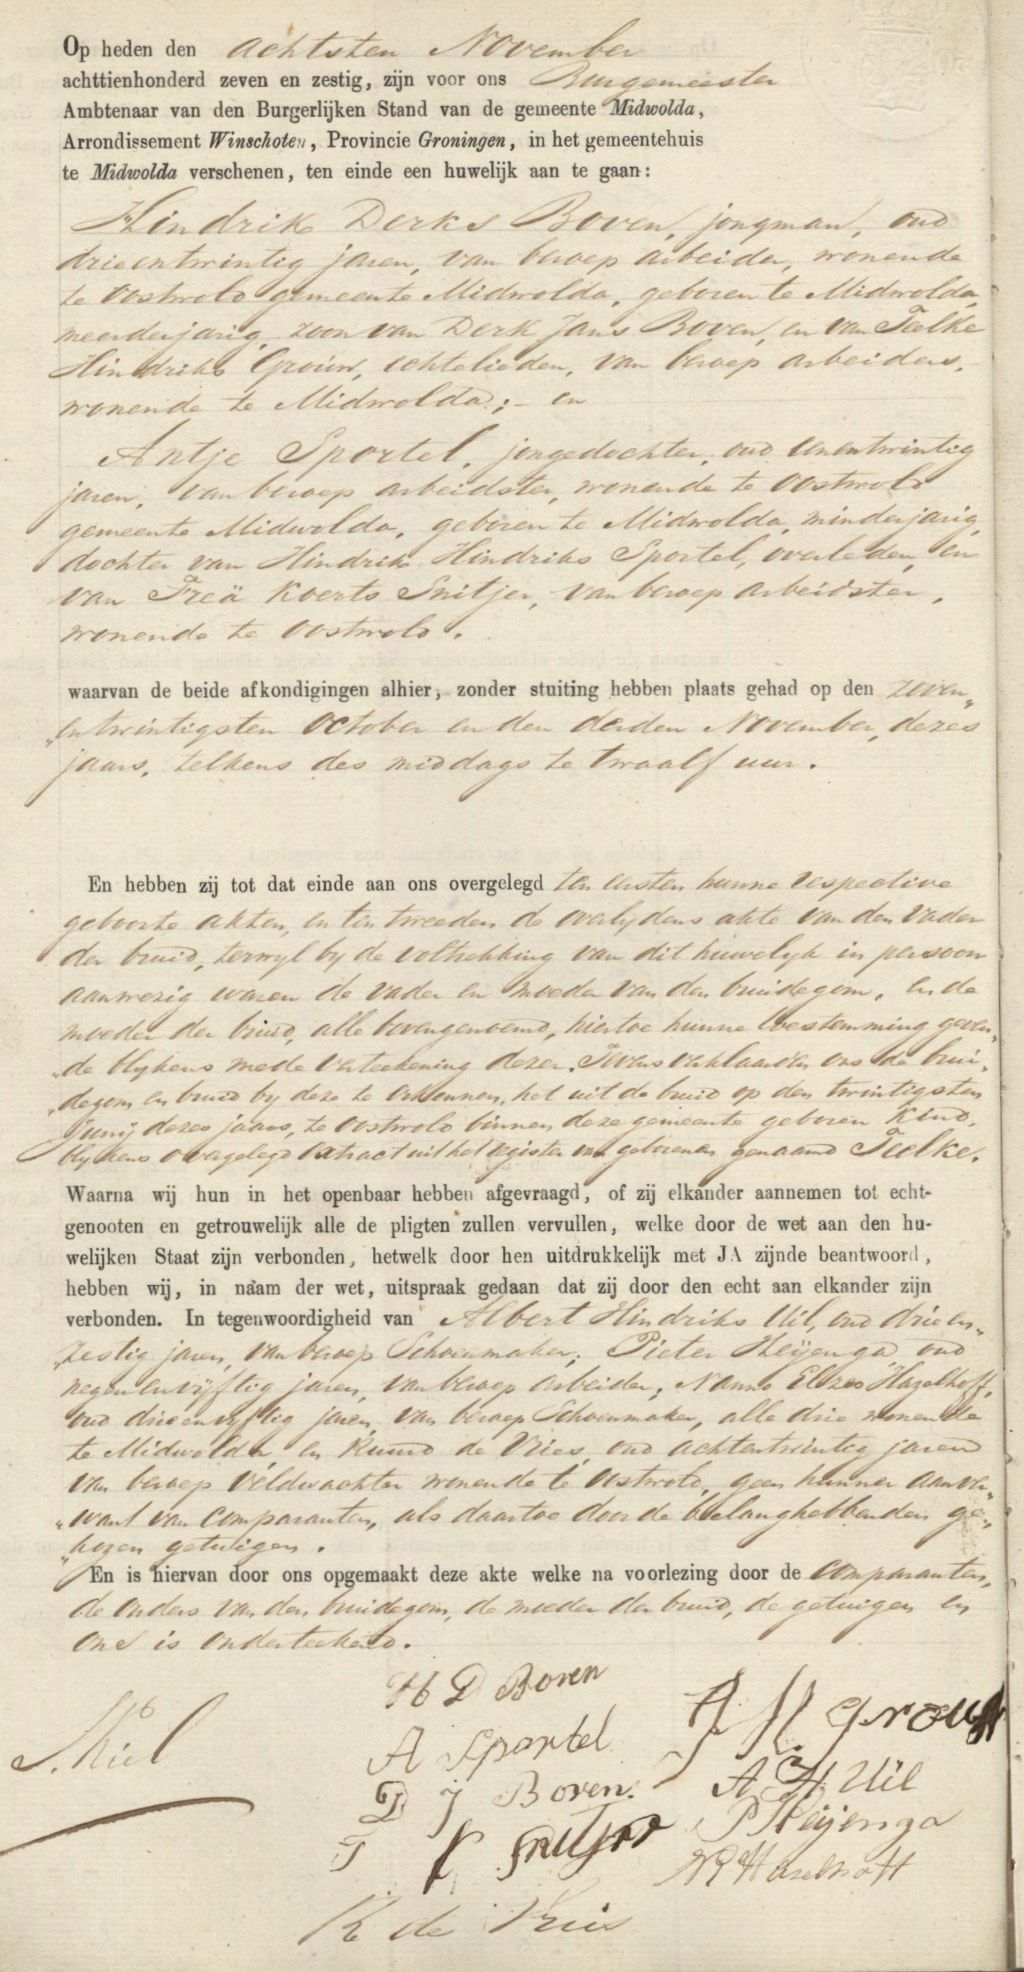 Op heden den achtsten November
achttienhonderd zeven en zestig, zijn voor ons Burgemeester
Ambtenaar van den Burgerlijken Stand van de gemeente Midwolda,
Arrondissement Winschoten, Provincie Groningen, in het gemeentehuis
te Midwolda verschenen, ten einde een huwelijk aan te gaan:
Hindrik Derks Boven, jongman, oud
drieentwintig jaren, van beroep arbeider, wonende
te Oostwold gemeente Midwolda, geboren te Midwolda,
meerderjarig zoon van Derk Jans Boven, en van Teelke
Hindriks Grouw, echtelieden, van beroep arbeiders,
wonende te Midwolda; en
Antje Sportel, jongedochter, oud eenentwintig
jaren, van beroep arbeidster, wonende te Oostwold
gemeente Midwolda, geboren te Midwolda, minderjarig
dochter van Hindrik Hindriks Sportel, overleden, en
van Freä Koerts Snitjer, van beroep arbeidster,
wonende te Oostwold.
waarvan de beide afkondigingen alhier, zonder stuiting hebben plaats gehad op den zeven„
„entwintigsten October en den derden November, dezes
jaars, telkens des middags te twaalf uur.
En hebben zij tot dat einde aan ons overgelegd ten eersten hunne respective
geboorte akten, en ten tweeden de overlijdens akte van den vader
der bruid, terwyl by de voltrekking van dit huwelyk in persoon
aanwezig waren de vader en moeder van den bruidegom, en de
moeder der bruid, alle bovengenoemd, hiertoe hunne toestemming geven„
„de blykens mede verteekening dezer. Tevens verklaarden ons de brui„
„degom en bruid by deze te erkennen, het uit de bruid op den twintigsten
Junij dezes jaars, te Oostwold binnen deze gemeente geboren Kind,
blykens overgelegd extract uit het register van geborenen genaamd Teelke.
Waarna wij hun in het openbaar hebben afgevraagd, of zij elkander aannemen tot echt-
genooten en getrouwelijk alle de pligten zullen vervullen, welke door de wet aan den hu-
welijken Staat zijn verbonden, hetwelk door hen uitdrukkelijk met JA zijnde beantwoord,
hebben wij, in naam der wet, uitspraak gedaan dat zij door den echt aan elkander zijn
verbonden. In tegenwoordigheid van Albert Hindriks Uil, oud drieen„
„zestig jaren, van beroep Schoenmaker, Pieter Heijenga oud
negenenvyftig jaren, van beroep arbeider, Nanno Hazelhoff,
oud drieenvyftig jaren, van beroep Schoenmaker, alle drie wonende
te Midwolda en Ruurd de Vries, oud achtentwintig jaren
van beroep veldwachter wonende te Oostwold, geen hunner aanver„
„want van comparanten, als daartoe door de belanghebbenden ge„
„kozen getuigen.
En is hiervan door ons opgemaakt deze akte welke na voorlezing door de comparanten,
de ouders van den bruidegom, de moeder der bruid, de getuigen en
ons is onderteekend.
H D Boven
A Sportel
H Grouw
D J Boven
A H Uil
P Heijenga
Hazelhoff
R de Vries